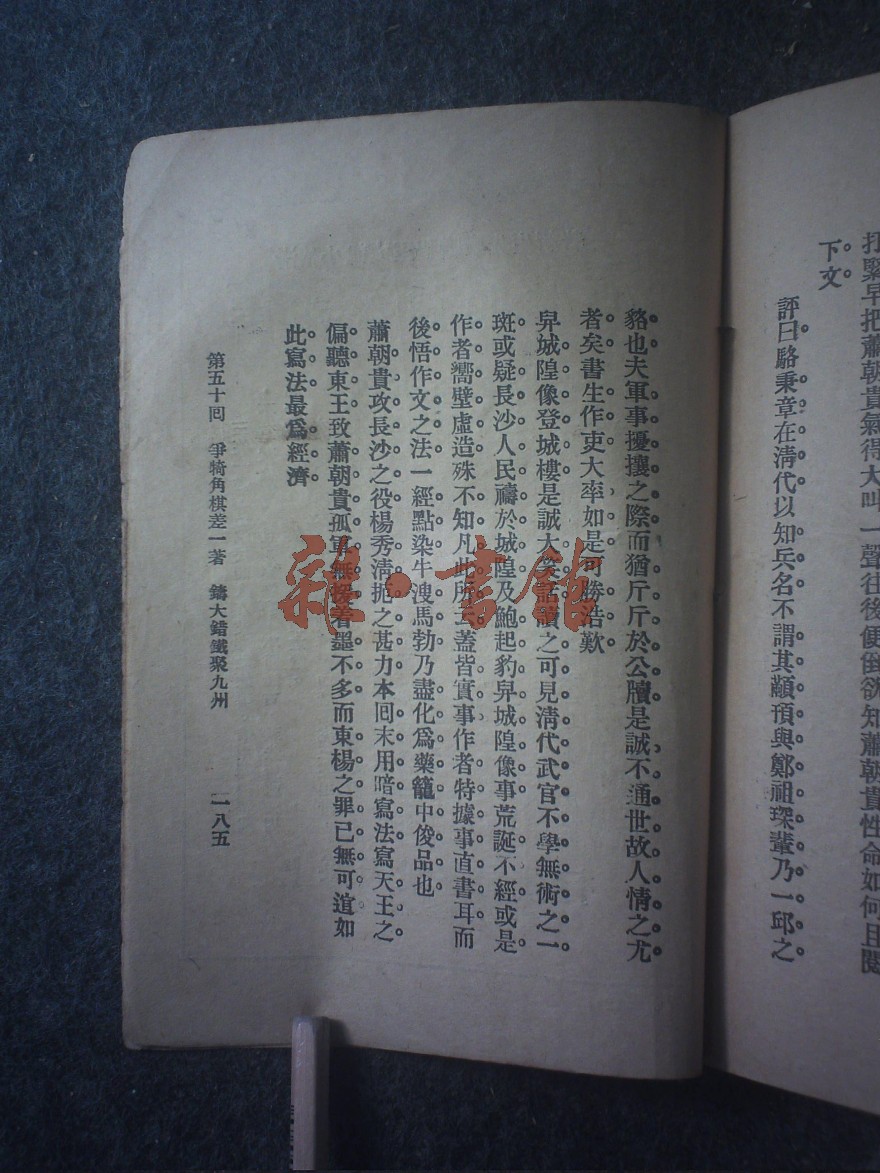 扭緊早把蕭朝貴氣得大叫一聲往後便倒欲知蕭朝貴性命如何且閱
下文
評曰駱秉章在清代以知兵名不謂其顢預與鄭祖琛輩乃一邱之
貉也夫軍事擾攘之際而猶斤斤於公牘是誠不通世故人情之尤
者矣書生作吏大率如是可勝浩歎
舁城隍像登城樓是誠大笑話讀之可見清代武官不學無術之一
斑或疑長沙人民禱於城隍及鮑起豹舁城隍像事荒誕不經或是
作者嚮壁虛造殊不知凡此所云蓋皆實事作者特據事直書耳而
後悟作文之法一經點染牛溲馬勃乃盡化爲藥籠中俊品也
蕭朝貴攻長沙之役楊秀清扼之甚力本回末用暗寫法寫天王之
偏聽東王致蕭朝貴孤軍無援着墨不多而東楊之罪已無可逭如
此寫法最爲經濟
第五十回 爭犄角棋差一著 鑄大錯鐵聚九州
一八五
雜·書館